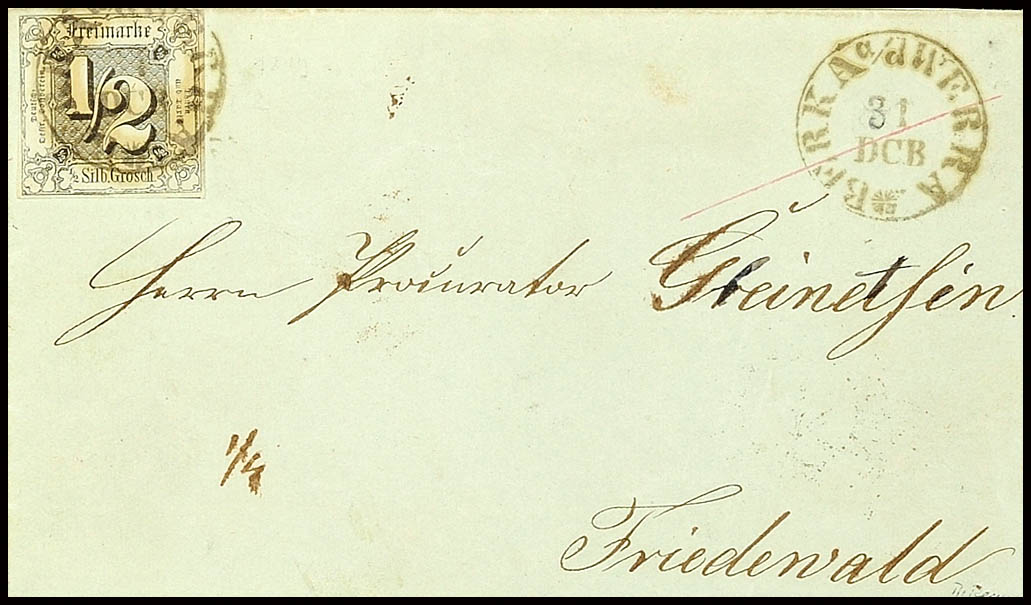 Freimarke
1/2
1/2 Silb. Grosch.
BERKA a/d WERRA
31
DCB
Herrn Procurator
Friedewald